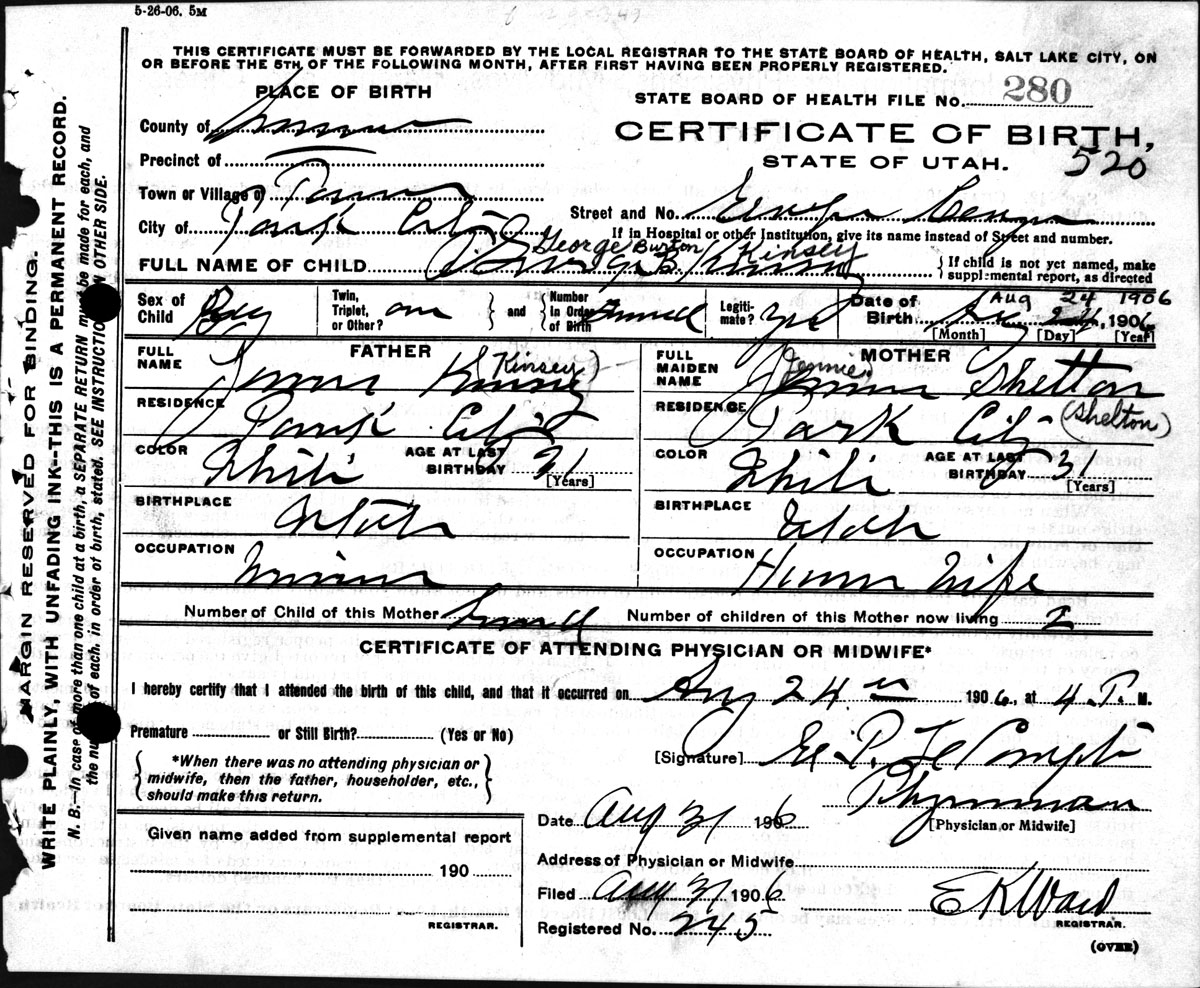 5-26-06. 5M
THIS CERTIFICATE MUST BE FORWARDED BY THE LOCAL REGISTRAR TO THE STATE BOARD OF HEALTH, SALT LAKE CITY, ON
OR BEFORE THE 5TH OF THE FOLLOWING MONTH, AFTER FIRST HAVING BEEN PROPERLY REGISTERED.
MARGIN RESERVED FOR BINDING.
WRITE PLAINLY, WITH UNFADING INK--THIS IS A PERMANENT RECORD.
N. B.—In case of more than one child at a birth, a SEPARATE RETURN must be made for each, and
the number of each, in order of birth, stated. SEE INSTRUCTIONS ON OTHER SIDE.
PLACE OF BIRTH
STATE BOARD OF HEALTH FILE No. 280
County of Summit
CERTIFICATE OF BIRTH,
Precinct of
STATE OF UTAH.
520
Town or Village of
Street and No.
City of Park City
If in Hospital or other Institution, give its name instead of Street and number.
George Burton Kinsey
FULL NAME OF CHILD George B Kinsey
{ If child is not yet named, make
supplemental report, as directed
Sex of Child Boy
Twin, Triplet, or Other? one
and
Number In Order of Birth Second
Legiti- mate? yes
Date of Birth Aug 24 1906
Aug 24, 1906
[Month] [Day] [Year]
FATHER
FULL NAME Kinsey (Kinsey)
RESIDENCE Park City
COLOR White
AGE AT LAST BIRTHDAY 31
[Years]
BIRTHPLACE Utah
OCCUPATION Miner
MOTHER
FULL MAIDEN NAME Jennie Shelton
(Jennie)
RESIDENCE Park City (Shelton)
COLOR White
AGE AT LAST BIRTHDAY 31
[Years]
BIRTHPLACE Utah
OCCUPATION House Wife
Number of Child of this Mother Second
Number of children of this Mother now living 2
CERTIFICATE OF ATTENDING PHYSICIAN OR MIDWIFE*
I hereby certify that I attended the birth of this child, and that it occurred on Aug 24 1906, at 4 P. M.
Premature or Still Birth? (Yes or No)
[Signature] E. P. Le Compte
*When there was no attending physician or
midwife, then the father, householder, etc.,
should make this return.
Physician
[Physician or Midwife]
Date Aug 31 1906
Given name added from supplemental report
190
REGISTRAR.
Address of Physician or Midwife
Filed Aug 31 1906
E K Ward
REGISTRAR.
Registered No. 245
(OVER)